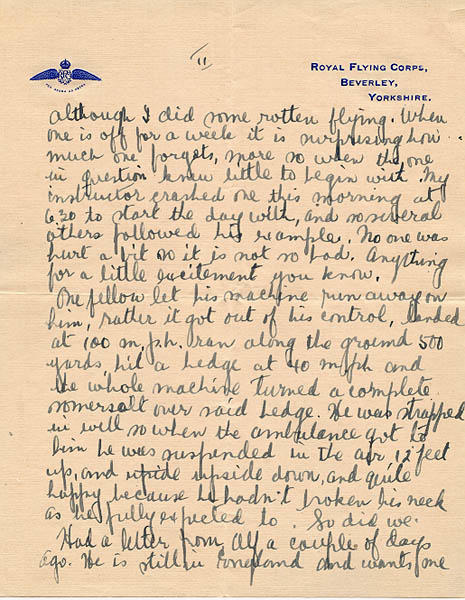 11
ROYAL FLYING CORPS,
BEVERLEY,
YORKSHIRE.
PER ARDUA AD ASTRA
although I did some rotten flying. When
one is off for a week it is surprising how
much one forgets, more so when the one
in question knew little to begin with. My
instructor crashed one this morning at
6.30 to start the day with, and so several
others followed his example. No one was
hurt a bit so it is not so bad. Anything
for a little excitement you know.
One fellow let his machine run away on
him, rather it got out of his control, landed
at 100 m.p.h. ran along the ground 500
yards, hit a hedge at 40 m/ph and
the whole machine turned a complete
somersalt over said hedge. He was strapped
in well so when the ambulance got to
him he was suspended in the air 12 feet
up, and upside down, and quite
happy because he hadn't broken his neck
as he fully expected to. So did we.
Had a letter from Alf a couple of days
ago. He is still in England and wants me